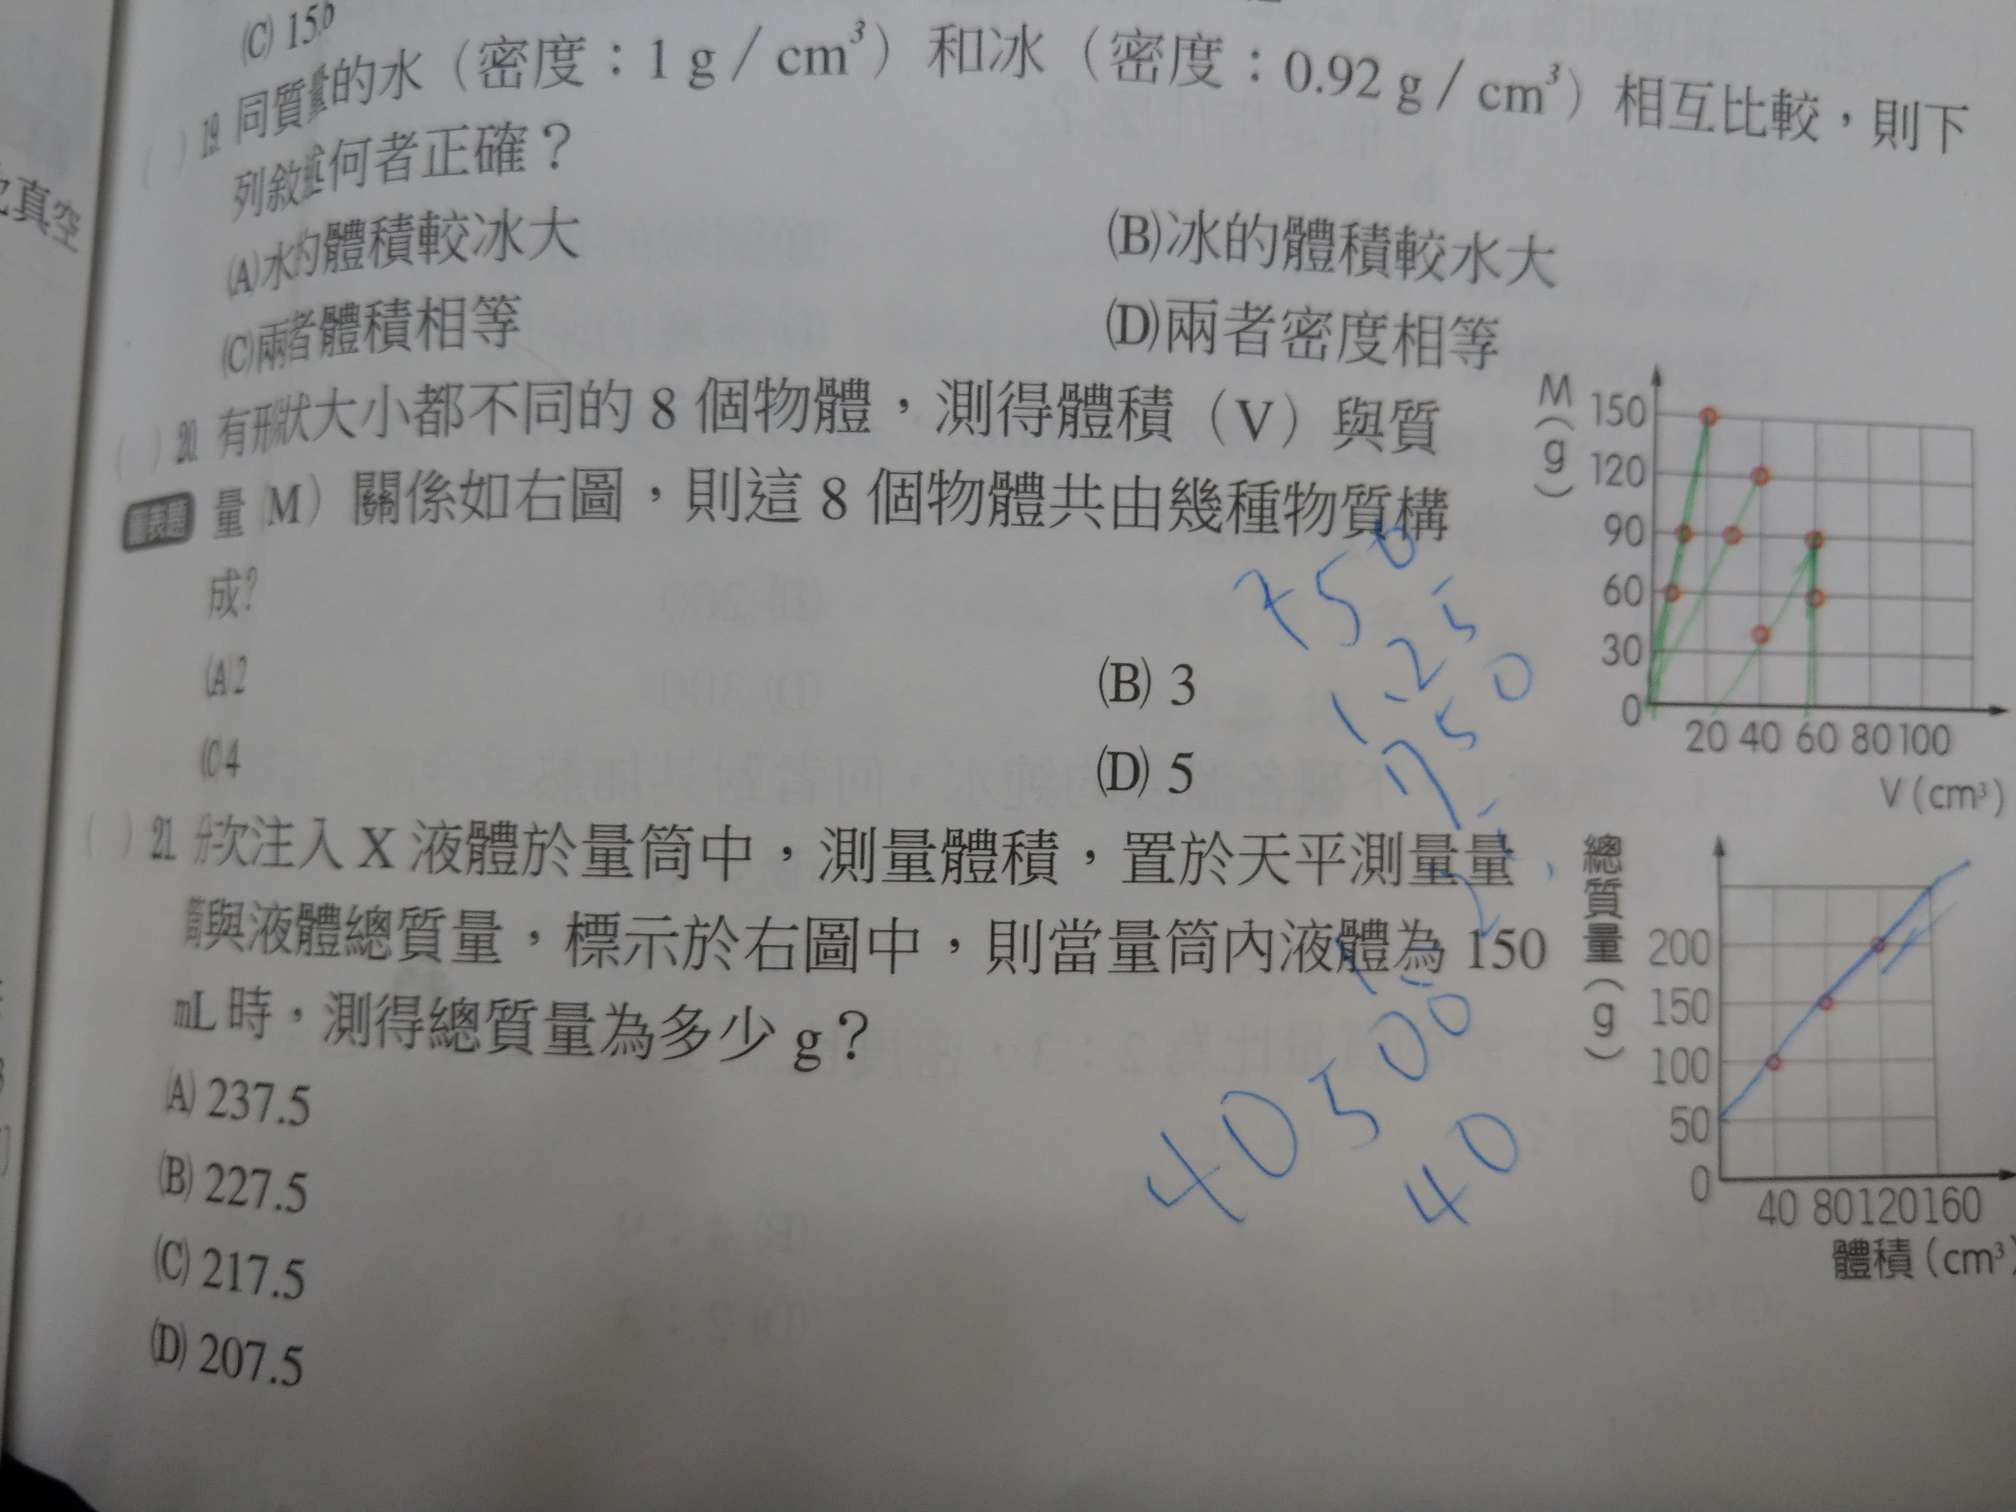 (C) 150
( ) 19. 同質量的水（密度：1 g／cm³）和冰（密度：0.92 g／cm³）相互比較，則下
列敘述何者正確？
(A)水的體積較冰大 (B)冰的體積較水大
(C)兩者體積相等 (D)兩者密度相等
( ) 20. 有形狀大小都不同的 8 個物體，測得體積（V）與質
量（M）關係如右圖，則這 8 個物體共由幾種物質構
成？
(A) 2 (B) 3
(C) 4 (D) 5
M(g)
150
120
90
60
30
0
20 40 60 80 100
V(cm³)
( ) 21. 分次注入 X 液體於量筒中，測量體積，置於天平測量量
筒與液體總質量，標示於右圖中，則當量筒內液體為 150
mL 時，測得總質量為多少 g？
(A) 237.5
(B) 227.5
(C) 217.5
(D) 207.5
總質量(g)
200
150
100
50
0
40 80 120 160
體積(cm³)
750
1.25
40 500
40
真空